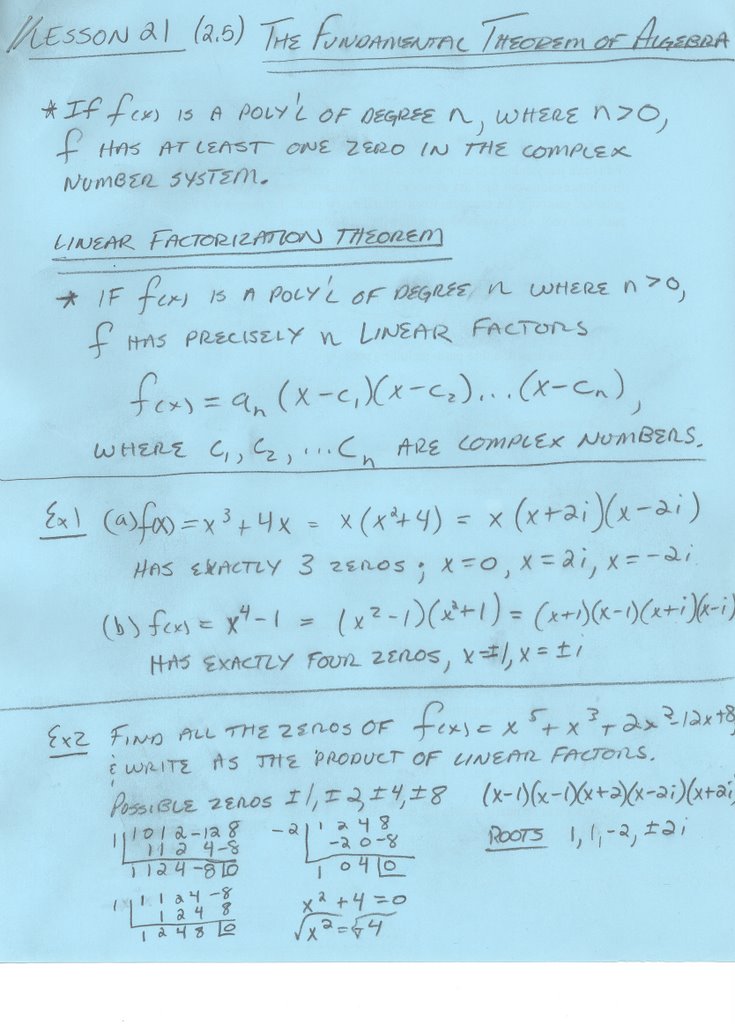 LESSON 21 (2.5) THE FUNDAMENTAL THEOREM OF ALGEBRA
* If f(x) IS A POLY'L OF DEGREE n, WHERE n>0,
f HAS AT LEAST ONE ZERO IN THE COMPLEX
NUMBER SYSTEM.
LINEAR FACTORIZATION THEOREM
* IF f(x) IS A POLY'L OF DEGREE n WHERE n>0,
f HAS PRECISELY n LINEAR FACTORS
f(x) = aₙ (x-c₁)(x-c₂)...(x-cₙ),
WHERE c₁, c₂, ...cₙ ARE COMPLEX NUMBERS.
Ex1 (a) f(x) = x³ + 4x = x(x²+4) = x(x+2i)(x-2i)
HAS EXACTLY 3 ZEROS; x=0, x=2i, x=-2i
(b) f(x) = x⁴-1 = (x²-1)(x²+1) = (x+1)(x-1)(x+i)(x-i)
HAS EXACTLY FOUR ZEROS, x=±1, x=±i
Ex2 FIND ALL THE ZEROS OF f(x) = x⁵ + x³ + 2x²-12x+8,
& WRITE AS THE PRODUCT OF LINEAR FACTORS.
POSSIBLE ZEROS ±1, ±2, ±4, ±8 (x-1)(x-1)(x+2)(x-2i)(x+2i)
1| 1 0 1 2 -12 8 -2| 1 2 4 8 ROOTS 1, 1, -2, ±2i
1 1 2 4 -8 -2 0 -8
1 1 2 4 -8 |0 1 0 4 |0
1| 1 1 2 4 -8 x² + 4 = 0
1 2 4 8 √x² = √-4
1 2 4 8 |0